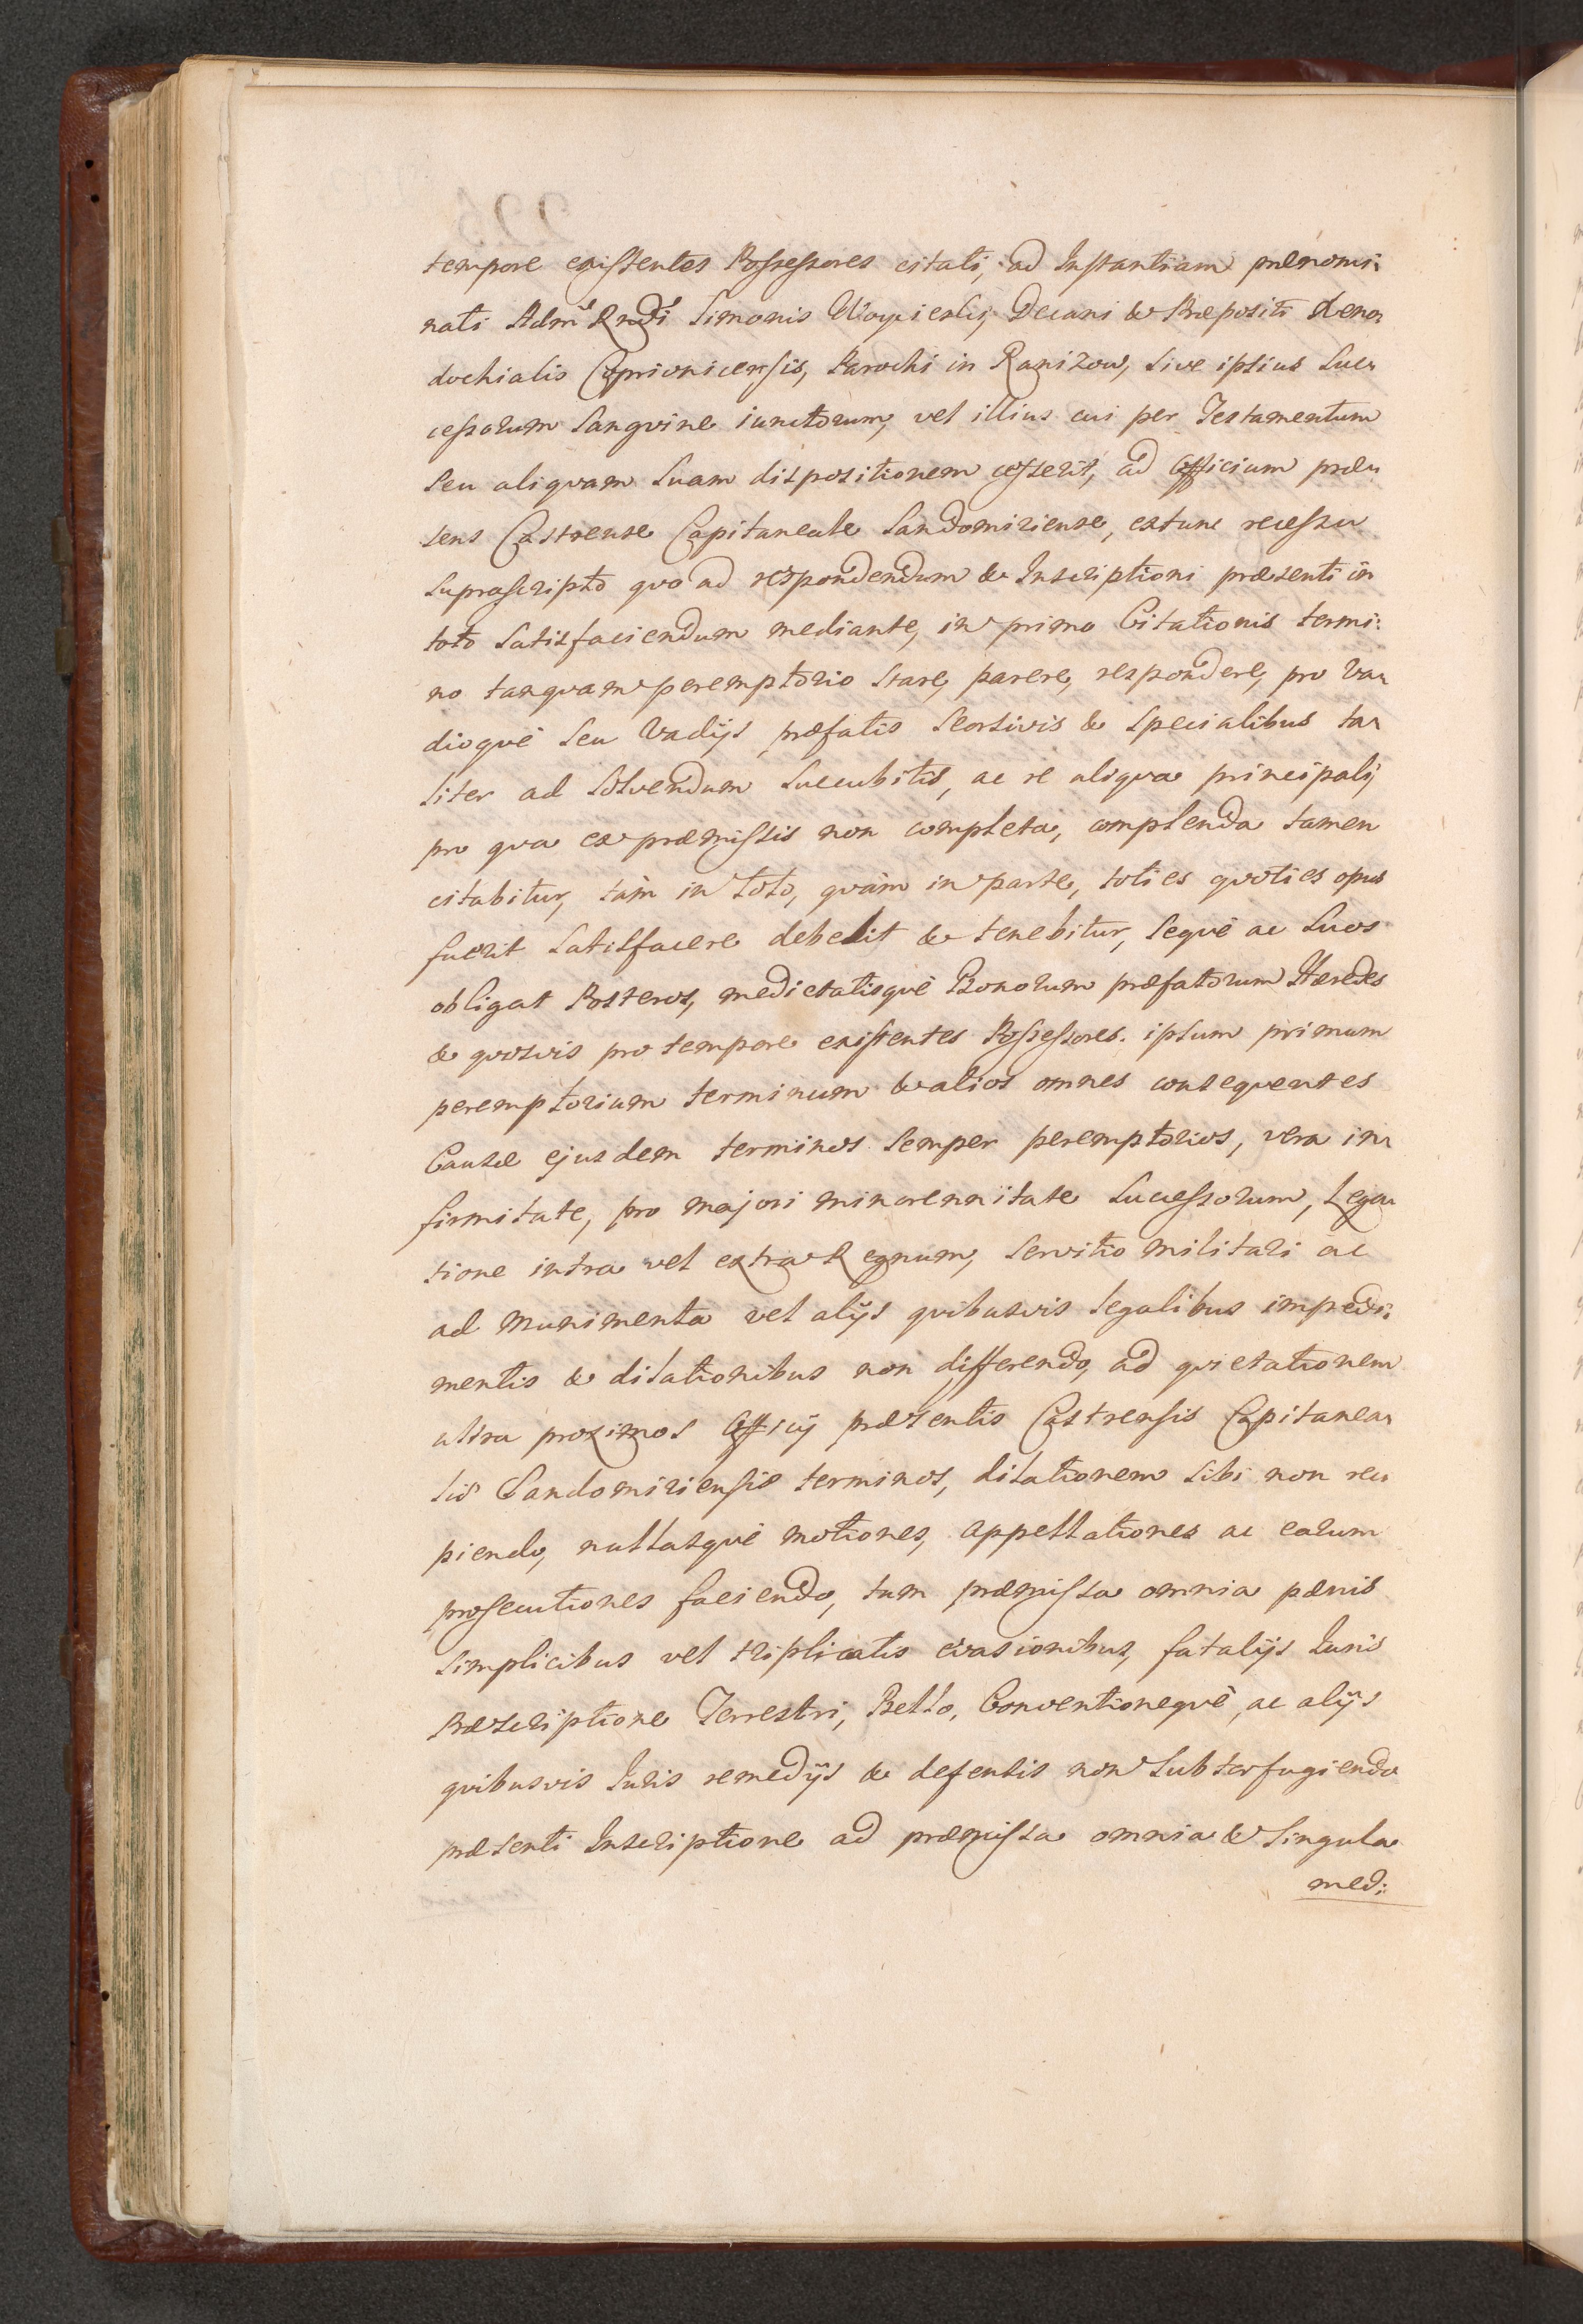 tempore existentes Possessores citati, ad Instantiam prænomi:
nati Adm̃ Rndi Simonis Woyciesky, Decani & Præpositi Xeno:
dochialis Coprivnicensis, Parochi in Ranizow, sive ipsius Suc:
cessorum Sangvine iunctorum, vel illius cui per Testamentum
seu aliqvam suam dispositionem cesserit, ad Officium præ:
sens Castrense Capitaneale Sandomiriense, extunc recessu
suprascripto qvo ad respondendum & Inscriptioni præsenti in
toto Satisfaciendum mediante, in primo Citationis termi:
no tanqvam peremptorio stare, parere, respondere, pro va:
dioqvè seu Vadijs præfatis Seorsivis & Specialibus ta:
liter ad Solvendum Succubitis, ac re aliqva principali,
pro qva ex præmissis non completa, complenda tamen
citabitur, tàm in toto, qvàm in parte, toties qvoties opus
fuerit Satisfacere debebit & tenebitur, Seqvè ac Suos
obligat Posteros, medietatisqvè Bonorum præfatorum Hæredes
& qvosvis pro tempore existentes Possessores. ipsum primum
peremptorium terminum & alios omnes conseqventes
Causæ ejusdem terminos semper peremptorios, vera in:
firmitate, pro majori minorennitate Successorum, Lega:
tione intra vel extra Regnum, Servitio militari ac
ad Munimenta vel alijs qvibusvis legalibus impedi:
mentis & dilationibus non differendo, ad qvietationem
ultra proximos Officij præsentis Castrensis Capitanea:
lis Sandomiriensis terminos, dilationem sibi non reci:
piendo, nullasqvè motiones, appellationes ac earum
prosecutiones faciendo, tum præmissa omnia pænis
simplicibus vel triplicatis evasionibus, fatalijs Iuris
Præscriptione Terrestri, Bello, Conventioneqvè, ac alijs
qvibusvis Iuris remedijs & defensis non Subterfugiendo
præsenti Inscriptione ad præmissa omnia & Singula
medi: